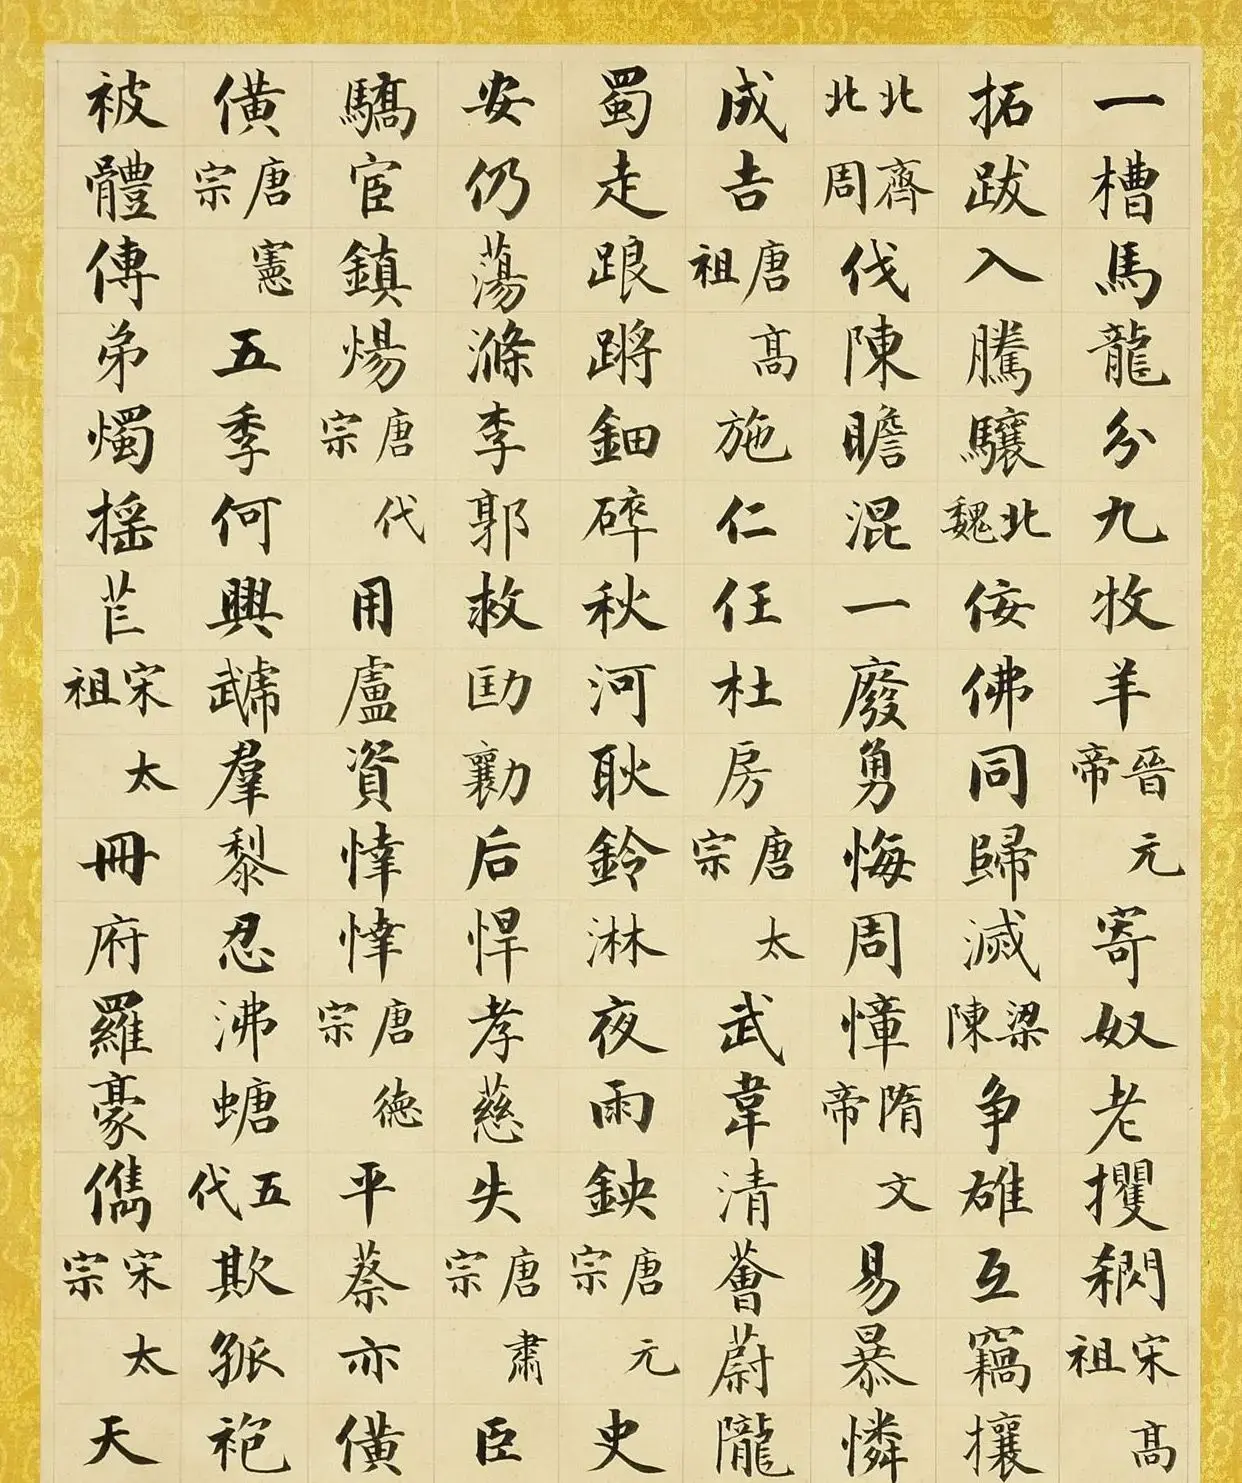 一槽馬龍分九牧羊晉元帝寄奴老攫宋高祖
拓跋入騰驤北魏佞佛同歸滅梁陳争雄互竊攘
北齊北周伐陳瞻混一廢勇悔周慞隋文帝易暴憐
成吉唐高祖施仁任杜房唐太宗武韋清薈蔚隴
蜀走踉蹡鈿碎秋河耿鈴淋夜雨鉠唐元宗史
安仍蕩滌李郭救劻勷后悍孝慈失唐肅宗臣
驕宦鎮煬唐代宗用盧資悻悻唐德宗平蔡亦僙
僙唐憲宗五季何興羣黎忍沸螗五代欺孤袍
被體傳弟燭揺芒宋太祖冊府羅豪儁宋太宗天